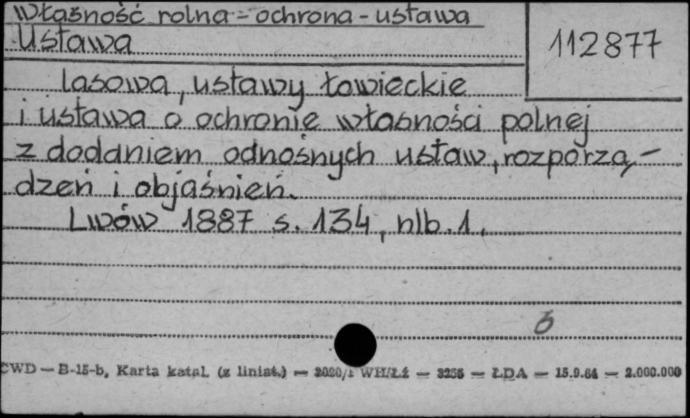 Własność rolna - ochrona - ustawa
Ustawa
112877
lasowa, ustawy łowieckie
i ustawa o ochronie własności polnej
z dodaniem odnośnych ustaw, rozporzą-
dzeń i objaśnień.
Lwów 1887 s. 134, nlb. 1.
CWD — B-15-b, Karta katal. (z liniat.) — 2020/1 WH/Łź — 3256 — ŁDA — 15.9.64 — 2.000.000